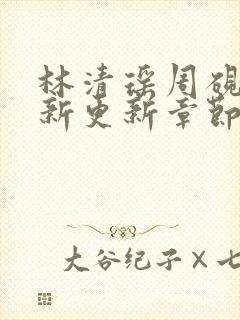 林清瑶周砚
新更新章節
大谷纪子×七